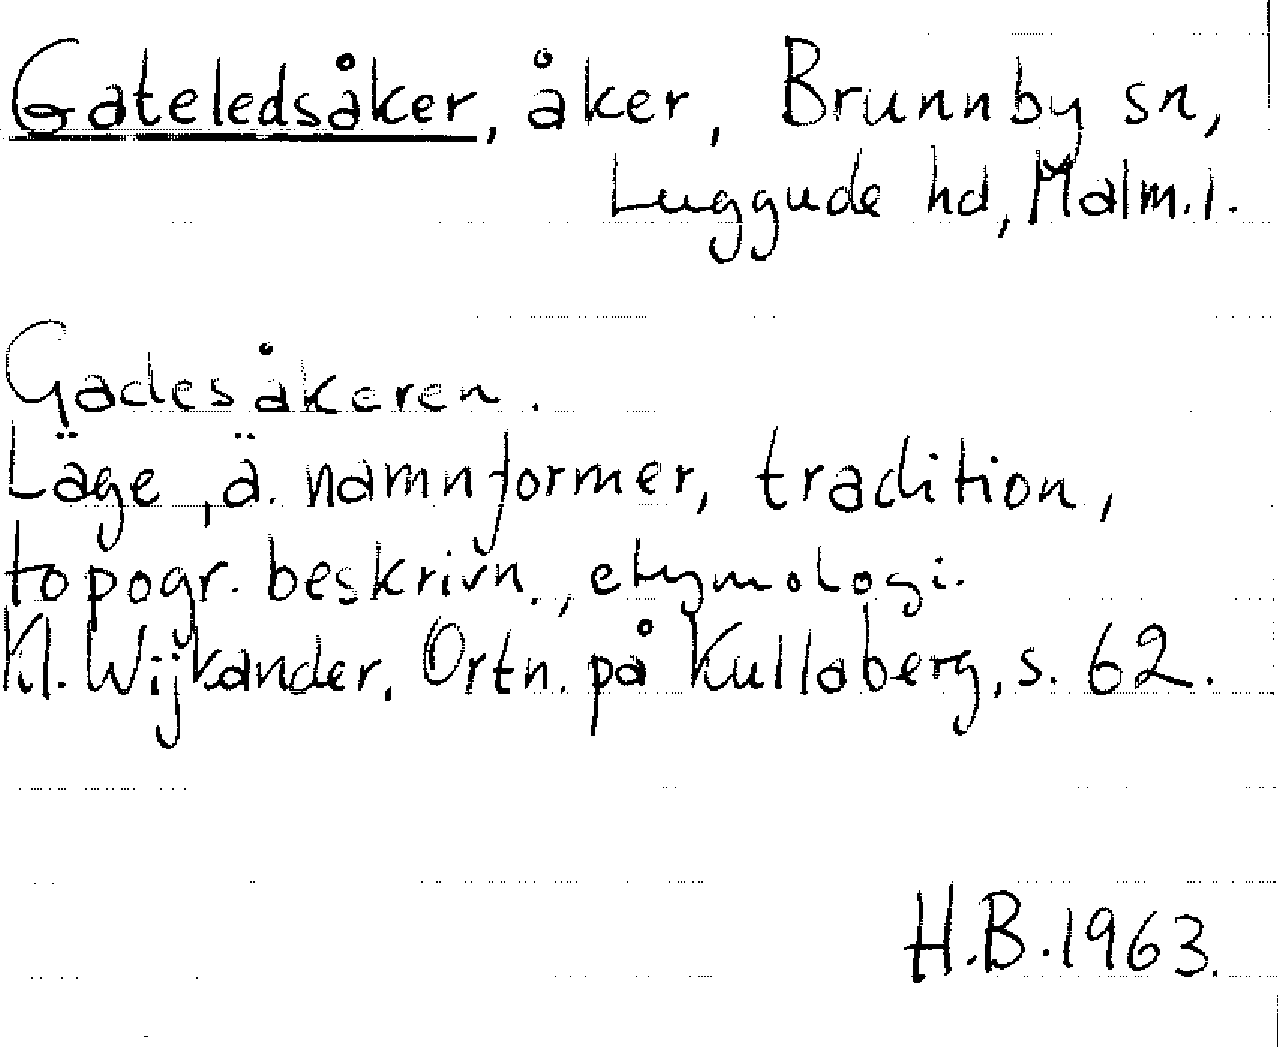 Gateledsåker, åker, Brunnby sn,
Luggude hd, Malm.l.
Gadesåkeren.
Läge, ä. namnformer, tradition,
topogr. beskrivn., etymologi.
Kl. Wijkander, Ortn. på Kullaberg, s. 62.
H.B. 1963.